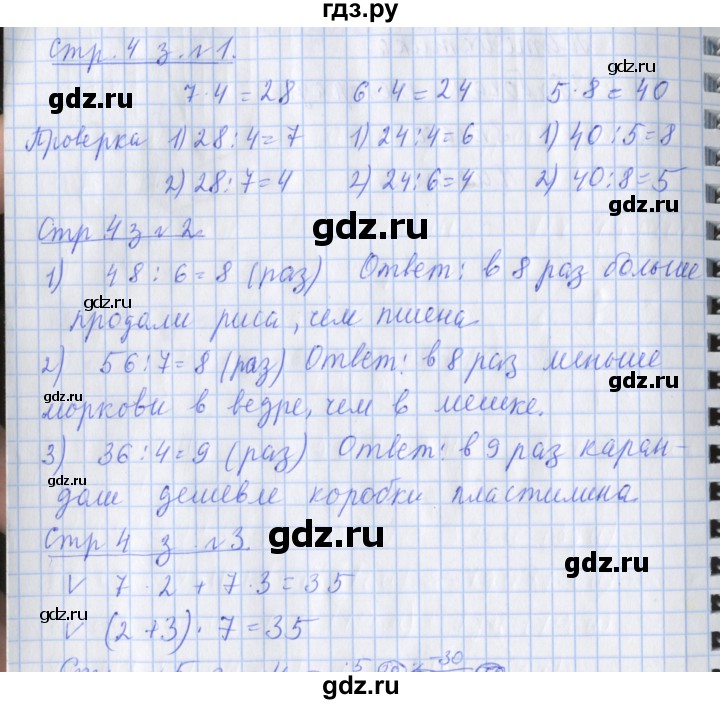 гдз.ру
Стр. 4 з. №1.
gdz.ru
7·4=28 6·4=24 5·8=40
gdz.ru gdz.ru gdz.ru
Проверка 1) 28:4=7 1) 24:4=6 1) 40:5=8
2) 28:7=4 2) 24:6=4 2) 40:8=5
gdz.ru
Стр 4 з №2.
gdz.ru
1) 48:6=8 (раз) Ответ: в 8 раз больше
gdz.ru
продали риса, чем пшена
gdz.ru
2) 56:7=8 (раз) Ответ: в 8 раз меньше
gdz.ru gdz.ru
моркови в ведре, чем в мешке.
3) 36:4=9 (раз) Ответ: в 9 раз каран-
gdz.ru
даш дешевле коробки пластилина
gdz.ru
Стр 4 з №3.
gdz.ru
V 7·2+7·3=35
gdz.ru
V (2+3)·7=35
gdz.ru gdz.ru
gdz.ru